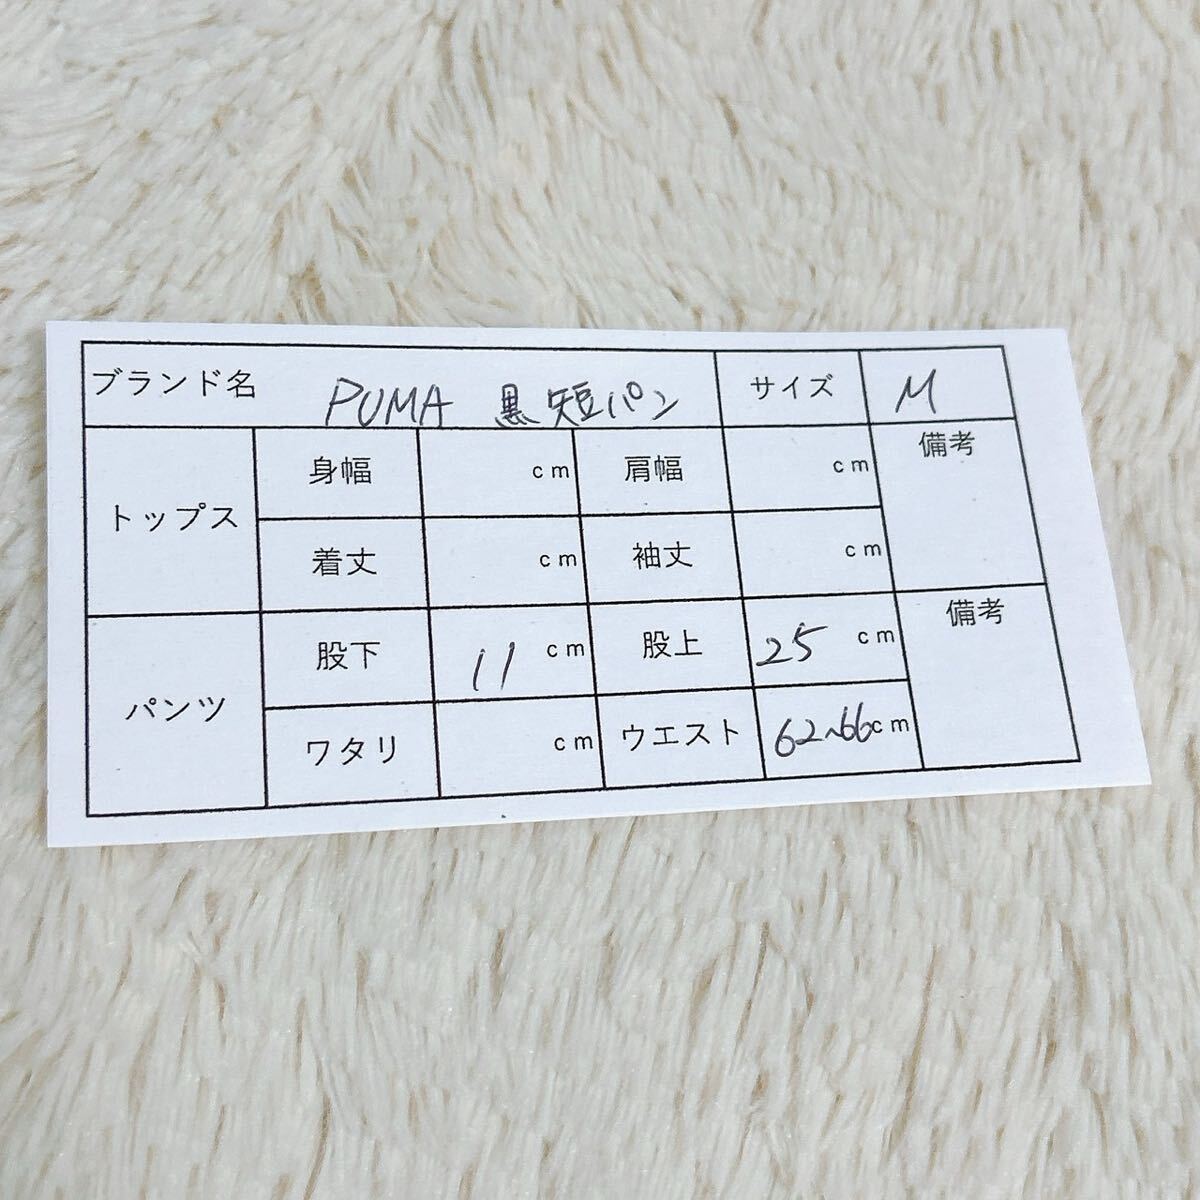 ブランド名 PUMA 黒 短パン サイズ M
トップス 身幅 cm 肩幅 cm 備考
着丈 cm 袖丈 cm
パンツ 股下 11 cm 股上 25 cm 備考
ワタリ cm ウエスト 62~66cm